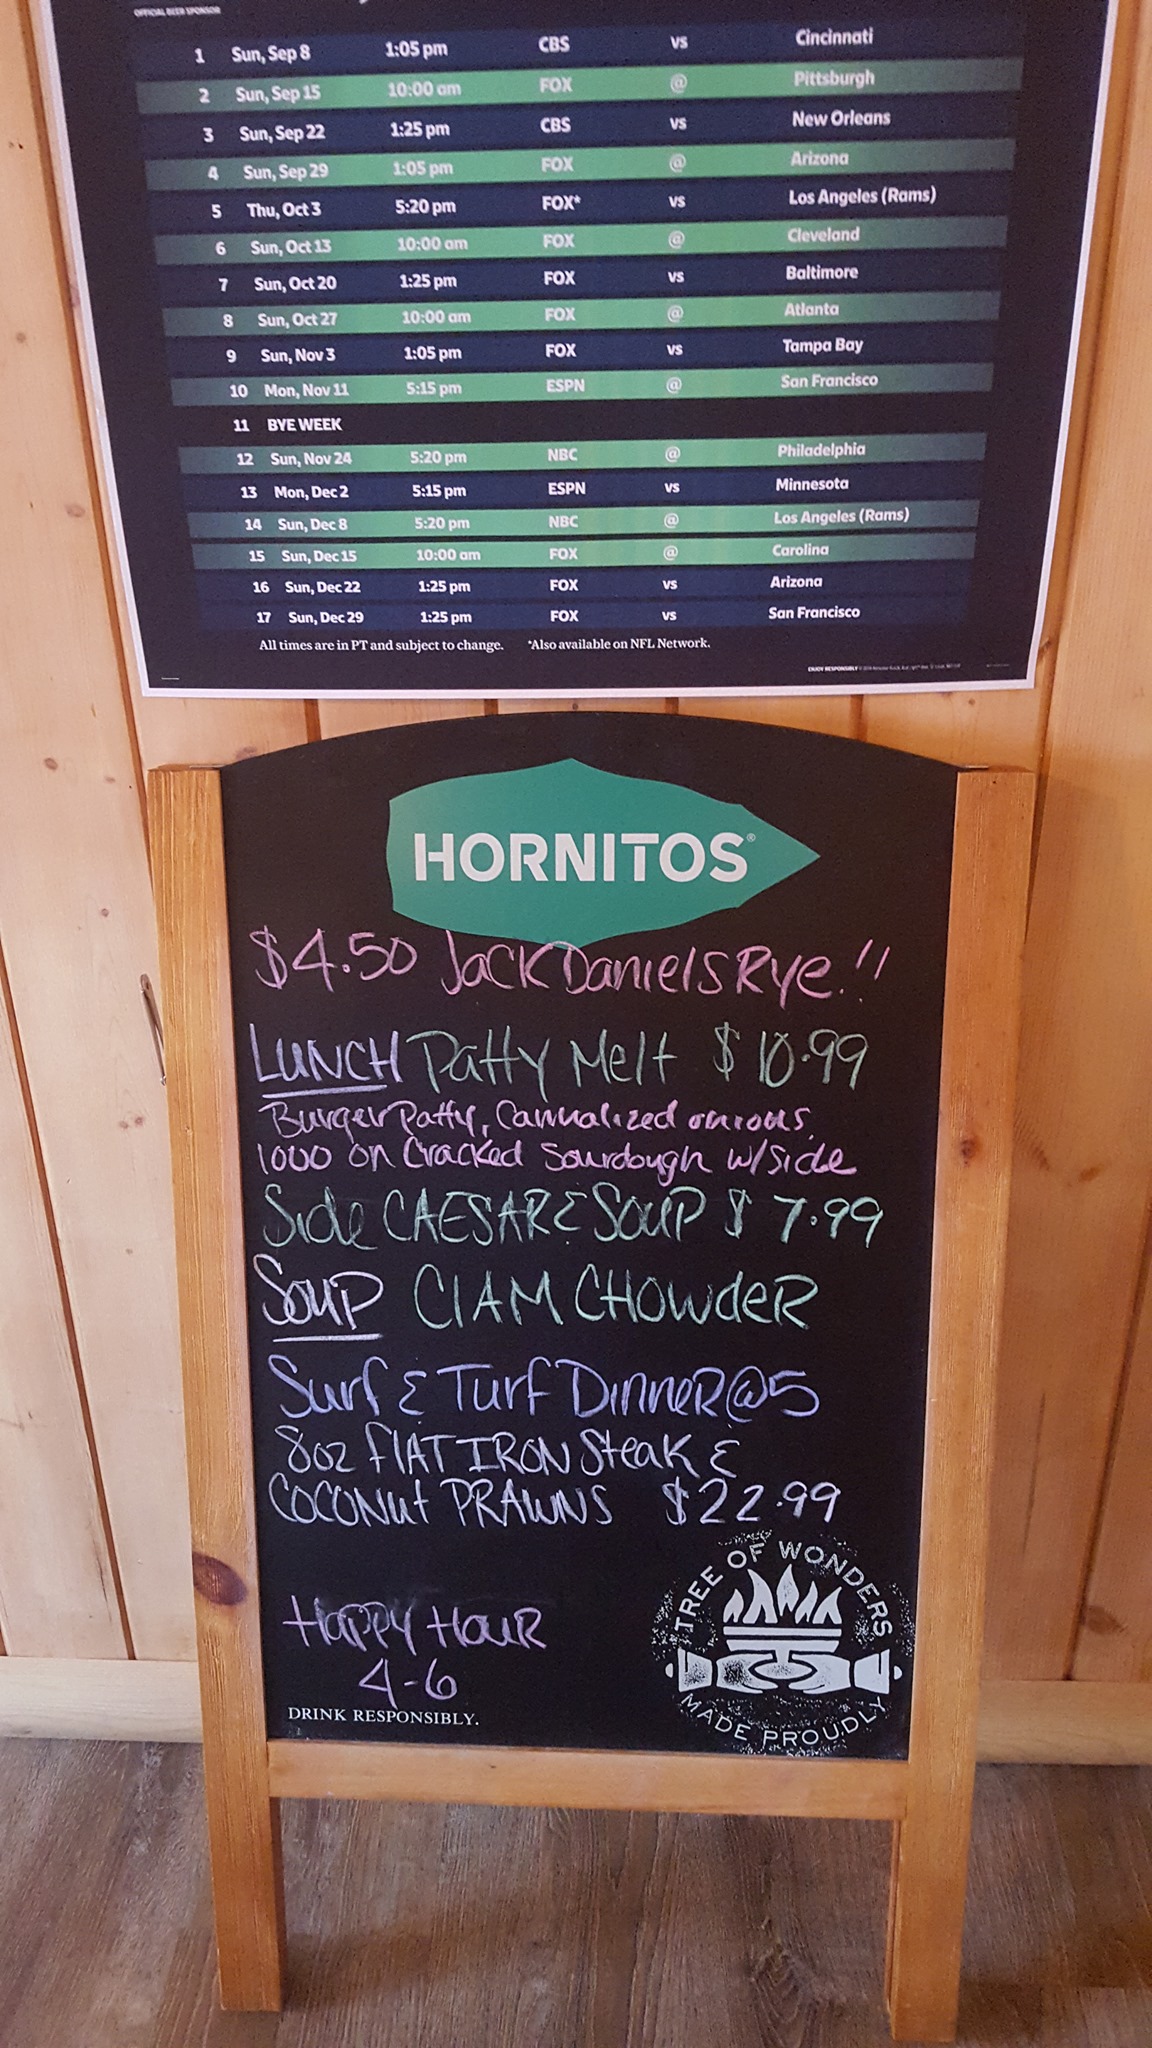 OFFICIAL BEER SPONSOR
1 Sun, Sep 8 1:05 pm CBS vs Cincinnati
2 Sun, Sep 15 10:00 am FOX @ Pittsburgh
3 Sun, Sep 22 1:25 pm CBS vs New Orleans
4 Sun, Sep 29 1:05 pm FOX @ Arizona
5 Thu, Oct 3 5:20 pm FOX* vs Los Angeles (Rams)
6 Sun, Oct 13 10:00 am FOX @ Cleveland
7 Sun, Oct 20 1:25 pm FOX vs Baltimore
8 Sun, Oct 27 10:00 am FOX @ Atlanta
9 Sun, Nov 3 1:05 pm FOX vs Tampa Bay
10 Mon, Nov 11 5:15 pm ESPN @ San Francisco
11 BYE WEEK
12 Sun, Nov 24 5:20 pm NBC @ Philadelphia
13 Mon, Dec 2 5:15 pm ESPN vs Minnesota
14 Sun, Dec 8 5:20 pm NBC @ Los Angeles (Rams)
15 Sun, Dec 15 10:00 am FOX @ Carolina
16 Sun, Dec 22 1:25 pm FOX vs Arizona
17 Sun, Dec 29 1:25 pm FOX vs San Francisco
All times are in PT and subject to change. *Also available on NFL Network.
ENJOY RESPONSIBLY
HORNITOS®
$4.50 Jack Daniels Rye!!
LUNCH Patty Melt $10.99
Burger Patty, onions,
1000 on Cracked Sourdough w/side
Side CAESAR & SOUP $7.99
Soup ClAM CHOWdeR
Surf & Turf DinneR @ 5
8oz FlAT IRON Steak &
COCONut PRAWNS $22.99
HAPPY HOUR
4-6
DRINK RESPONSIBLY.
TREE OF WONDERS
MADE PROUDLY